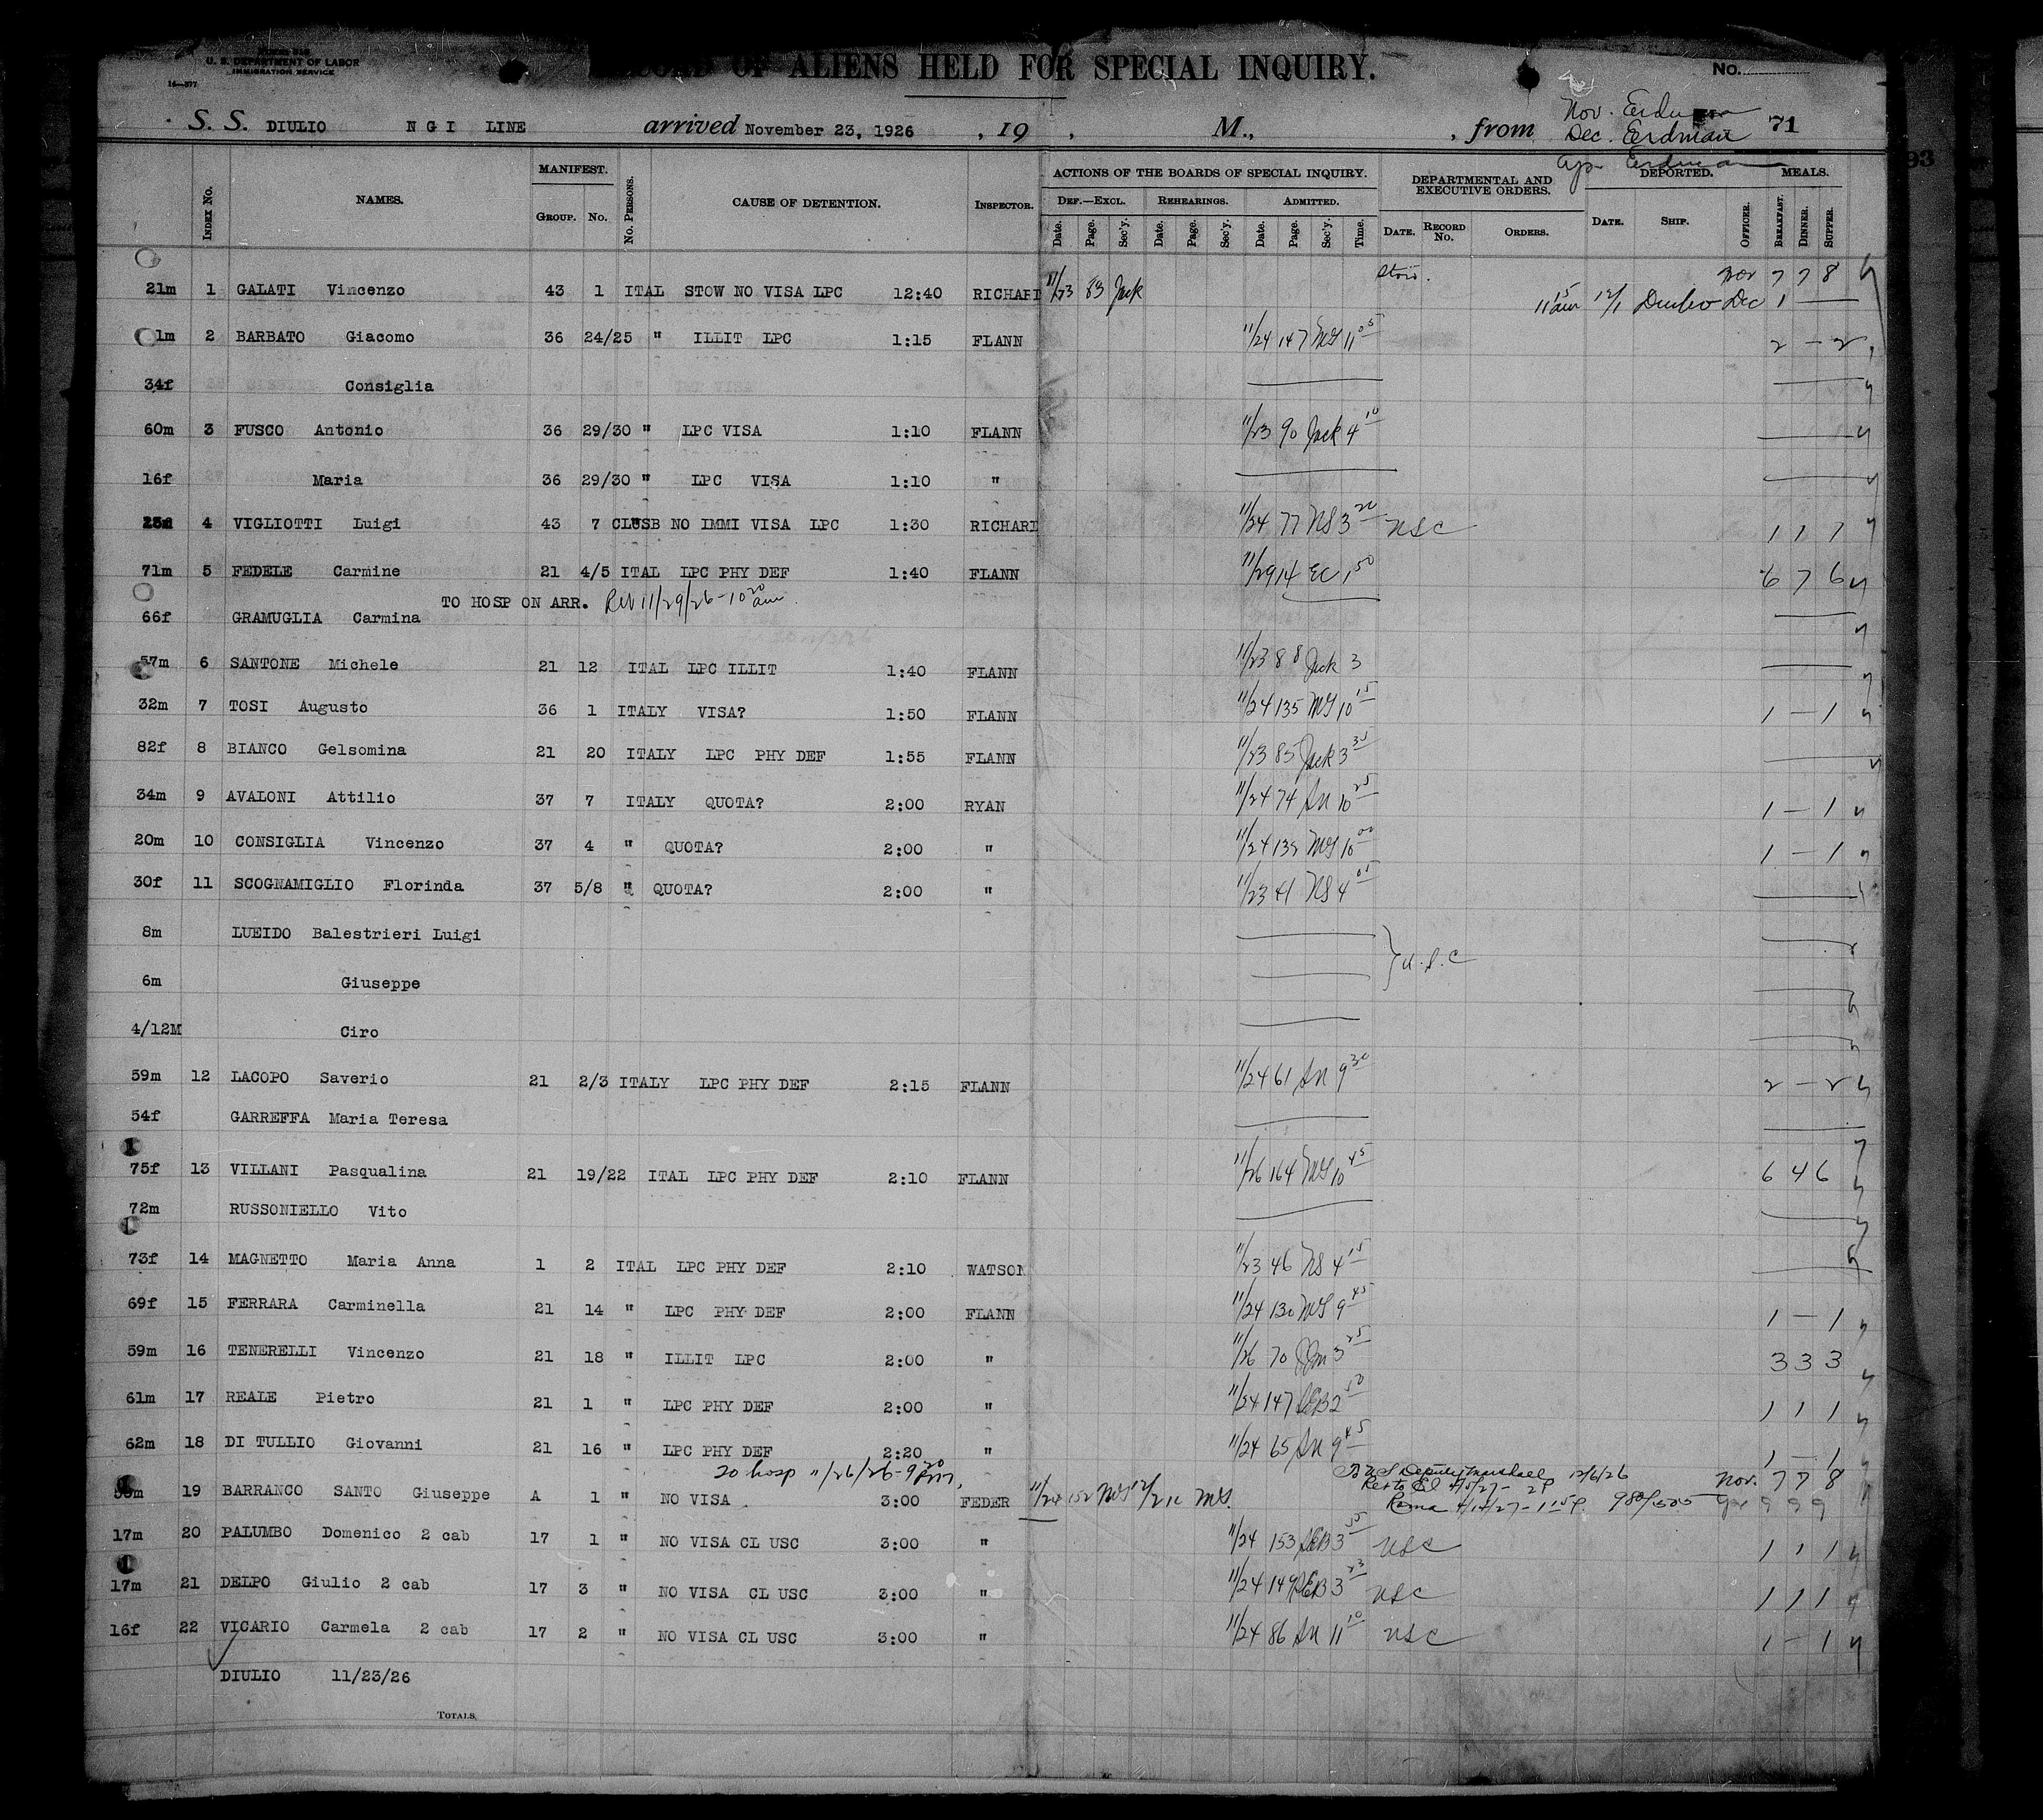 U. S. DEPARTMENT OF LABOR
IMMIGRATION SERVICE
16—577
OF ALIENS HELD FOR SPECIAL INQUIRY.
No.
S. S. DIULIO N G I LINE arrived November 23, 1926 , 19 , M., , from
Nov. Erdman
Dec. Erdman 71
Erdman
93
Index No. NAMES. MANIFEST. GROUP. NO. No. PERSONS. CAUSE OF DETENTION. INSPECTOR.
ACTIONS OF THE BOARDS OF SPECIAL INQUIRY. DEPARTMENTAL AND EXECUTIVE ORDERS. DEPORTED. MEALS.
DEF.—EXCL. REHEARINGS. ADMITTED.
Date. Page. Sec'y. Date. Page. Sec'y. Date. Page. Sec'y. Time. DATE. RECORD No. ORDERS. DATE. SHIP. OFFICER. BREAKFAST. DINNER. SUPPER.
21m 1 GALATI Vincenzo 43 1 ITAL STOW NO VISA LPC 12:40 RICHARD 11/23 83 Jack Nov 7 7 8
12/1 Duilio Dec 1
1m 2 BARBATO Giacomo 36 24/25 " ILLIT LPC 1:15 FLANN 11/24 147 MG 11 05 2 — 2
34f Consiglia
60m 3 FUSCO Antonio 36 29/30 " LPC VISA 1:10 FLANN 11/23 90 Jack 4 10
16f Maria 36 29/30 " LPC VISA 1:10 "
4 VIGLIOTTI Luigi 43 7 NO IMMI VISA LPC 1:30 RICHARD 11/24 77 NS 3 20 USC 1 1 1
71m 5 FEDELE Carmine 21 4/5 ITAL LPC PHY DEF 1:40 FLANN 11/29 14 EC 1 50 6 7 6
TO HOSP ON ARR. 11/29/26 - 10 20 am
66f GRAMUGLIA Carmina
57m 6 SANTONE Michele 21 12 ITAL LPC ILLIT 1:40 FLANN 11/23 88 Jack 3
32m 7 TOSI Augusto 36 1 ITALY VISA? 1:50 FLANN 11/24 135 MG 10 15 1 — 1
82f 8 BIANCO Gelsomina 21 20 ITALY LPC PHY DEF 1:55 FLANN 11/23 85 Jack 3 30
34m 9 AVALONI Attilio 37 7 ITALY QUOTA? 2:00 RYAN 11/24 74 10 25 1 — 1
20m 10 CONSIGLIA Vincenzo 37 4 " QUOTA? 2:00 " 11/24 132 MG 10 00 1 — 1
30f 11 SCOGNAMIGLIO Florinda 37 5/8 " QUOTA? 2:00 " 11/23 41 NS 4 05
8m LUEIDO Balestrieri Luigi
U.S.C
6m Giuseppe
4/12M Ciro
59m 12 LACOPO Saverio 21 2/3 ITALY LPC PHY DEF 2:15 FLANN 11/24 61 9 30 2 — 2
54f GARREFFA Maria Teresa
75f 13 VILLANI Pasqualina 21 19/22 ITAL LPC PHY DEF 2:10 FLANN 11/26 164 MG 10 45 6 4 6
72m RUSSONIELLO Vito
73f 14 MAGNETTO Maria Anna 1 2 ITAL LPC PHY DEF 2:10 WATSON 11/23 46 NS 4 15
69f 15 FERRARA Carminella 21 14 " LPC PHY DEF 2:00 FLANN 11/24 130 MG 9 45 1 — 1
59m 16 TENERELLI Vincenzo 21 18 " ILLIT LPC 2:00 " 11/26 70 3 25 3 3 3
61m 17 REALE Pietro 21 1 " LPC PHY DEF 2:00 " 11/24 147 SEB 2 50 1 1 1
62m 18 DI TULLIO Giovanni 21 16 " LPC PHY DEF 2:20 " 11/24 65 9 45 1 — 1
To hosp 11/26/26 - 9 20 pm. U S Deputy Marshall 12/6/26 Nov. 7 7 8
19 BARRANCO SANTO Giuseppe A 1 " NO VISA 3:00 FEDER 11/24 152 MG 12/2 MG 4/5/27 - 2P
Roma 4/14/27 - 1 15 P. 9 9 9
17m 20 PALUMBO Domenico 2 cab 17 1 " NO VISA CL USC 3:00 " 11/24 153 SEB 3 35 USC 1 1 1
17m 21 DELPO Giulio 2 cab 17 3 " NO VISA CL USC 3:00 " 11/24 149 SEB 3 23 USC 1 1 1
16f 22 VICARIO Carmela 2 cab 17 2 " NO VISA CL USC 3:00 " 11/24 86 11 10 USC 1 — 1
DIULIO 11/23/26
TOTALS